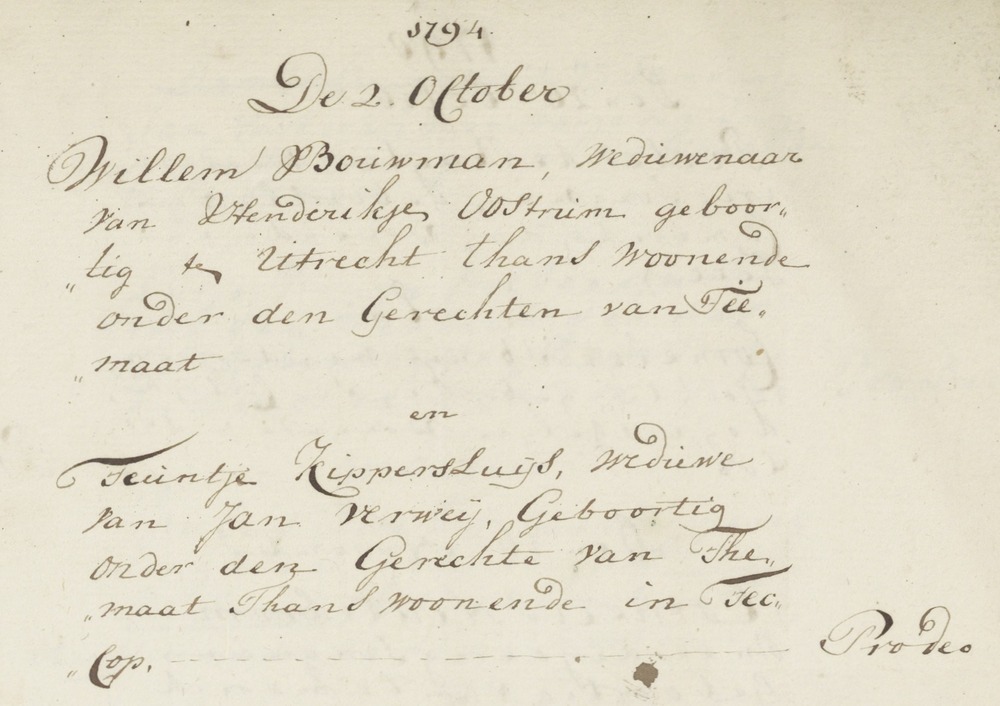 1794.
De 2. October
Willem Bouwman, weduwenaar
van Henderikje Oostrum geboor„
„tig te Utrecht thans woonende
onder den Gerechten van Tee„
„maat
en
Teuntje Kippersluijs, weduwe
van Jan Verweij, Geboortig
onder den Gerechte van The„
„maat Thans woonende in Tec„
„Cop.
Pro deo